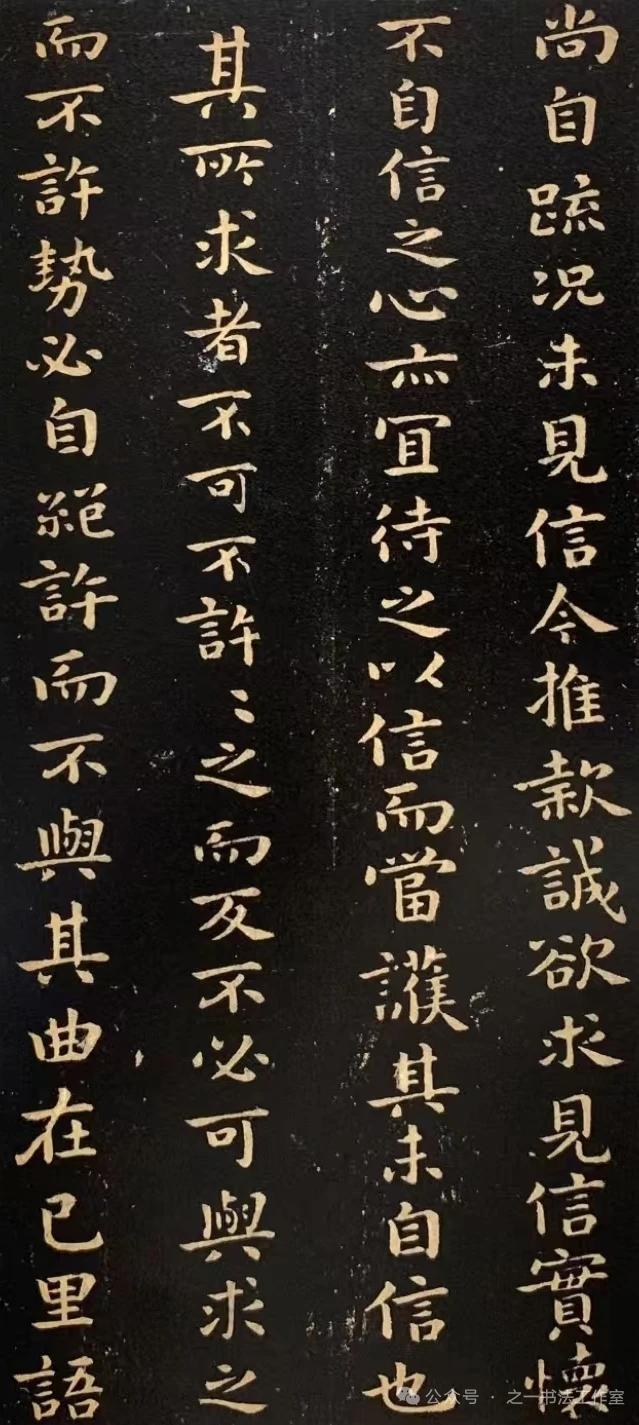 尚自疏況未見信今推款誠欲求見信實懷
不自信之心亦宜待之以信而當護其未自信也
其所求者不可不許〻之而反不必可與求之
而不許勢必自絕許而不與其曲在己里語
公众号 · 之一书法工作室